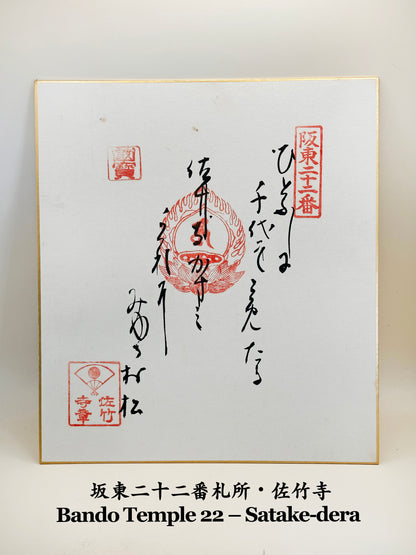 阪東二十二番
ひとふしに
千代をこ免たる
佐竹じかすミ
みゆる村松
佐竹
寺章
坂東二十二番札所・佐竹寺
Bando Temple 22 – Satake-dera